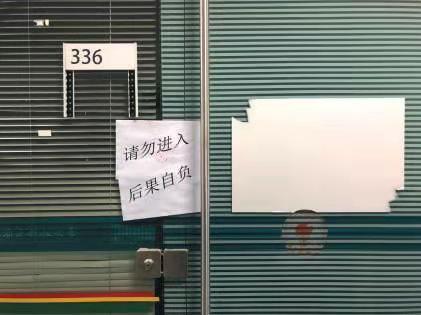 336
请勿进入
后果自负